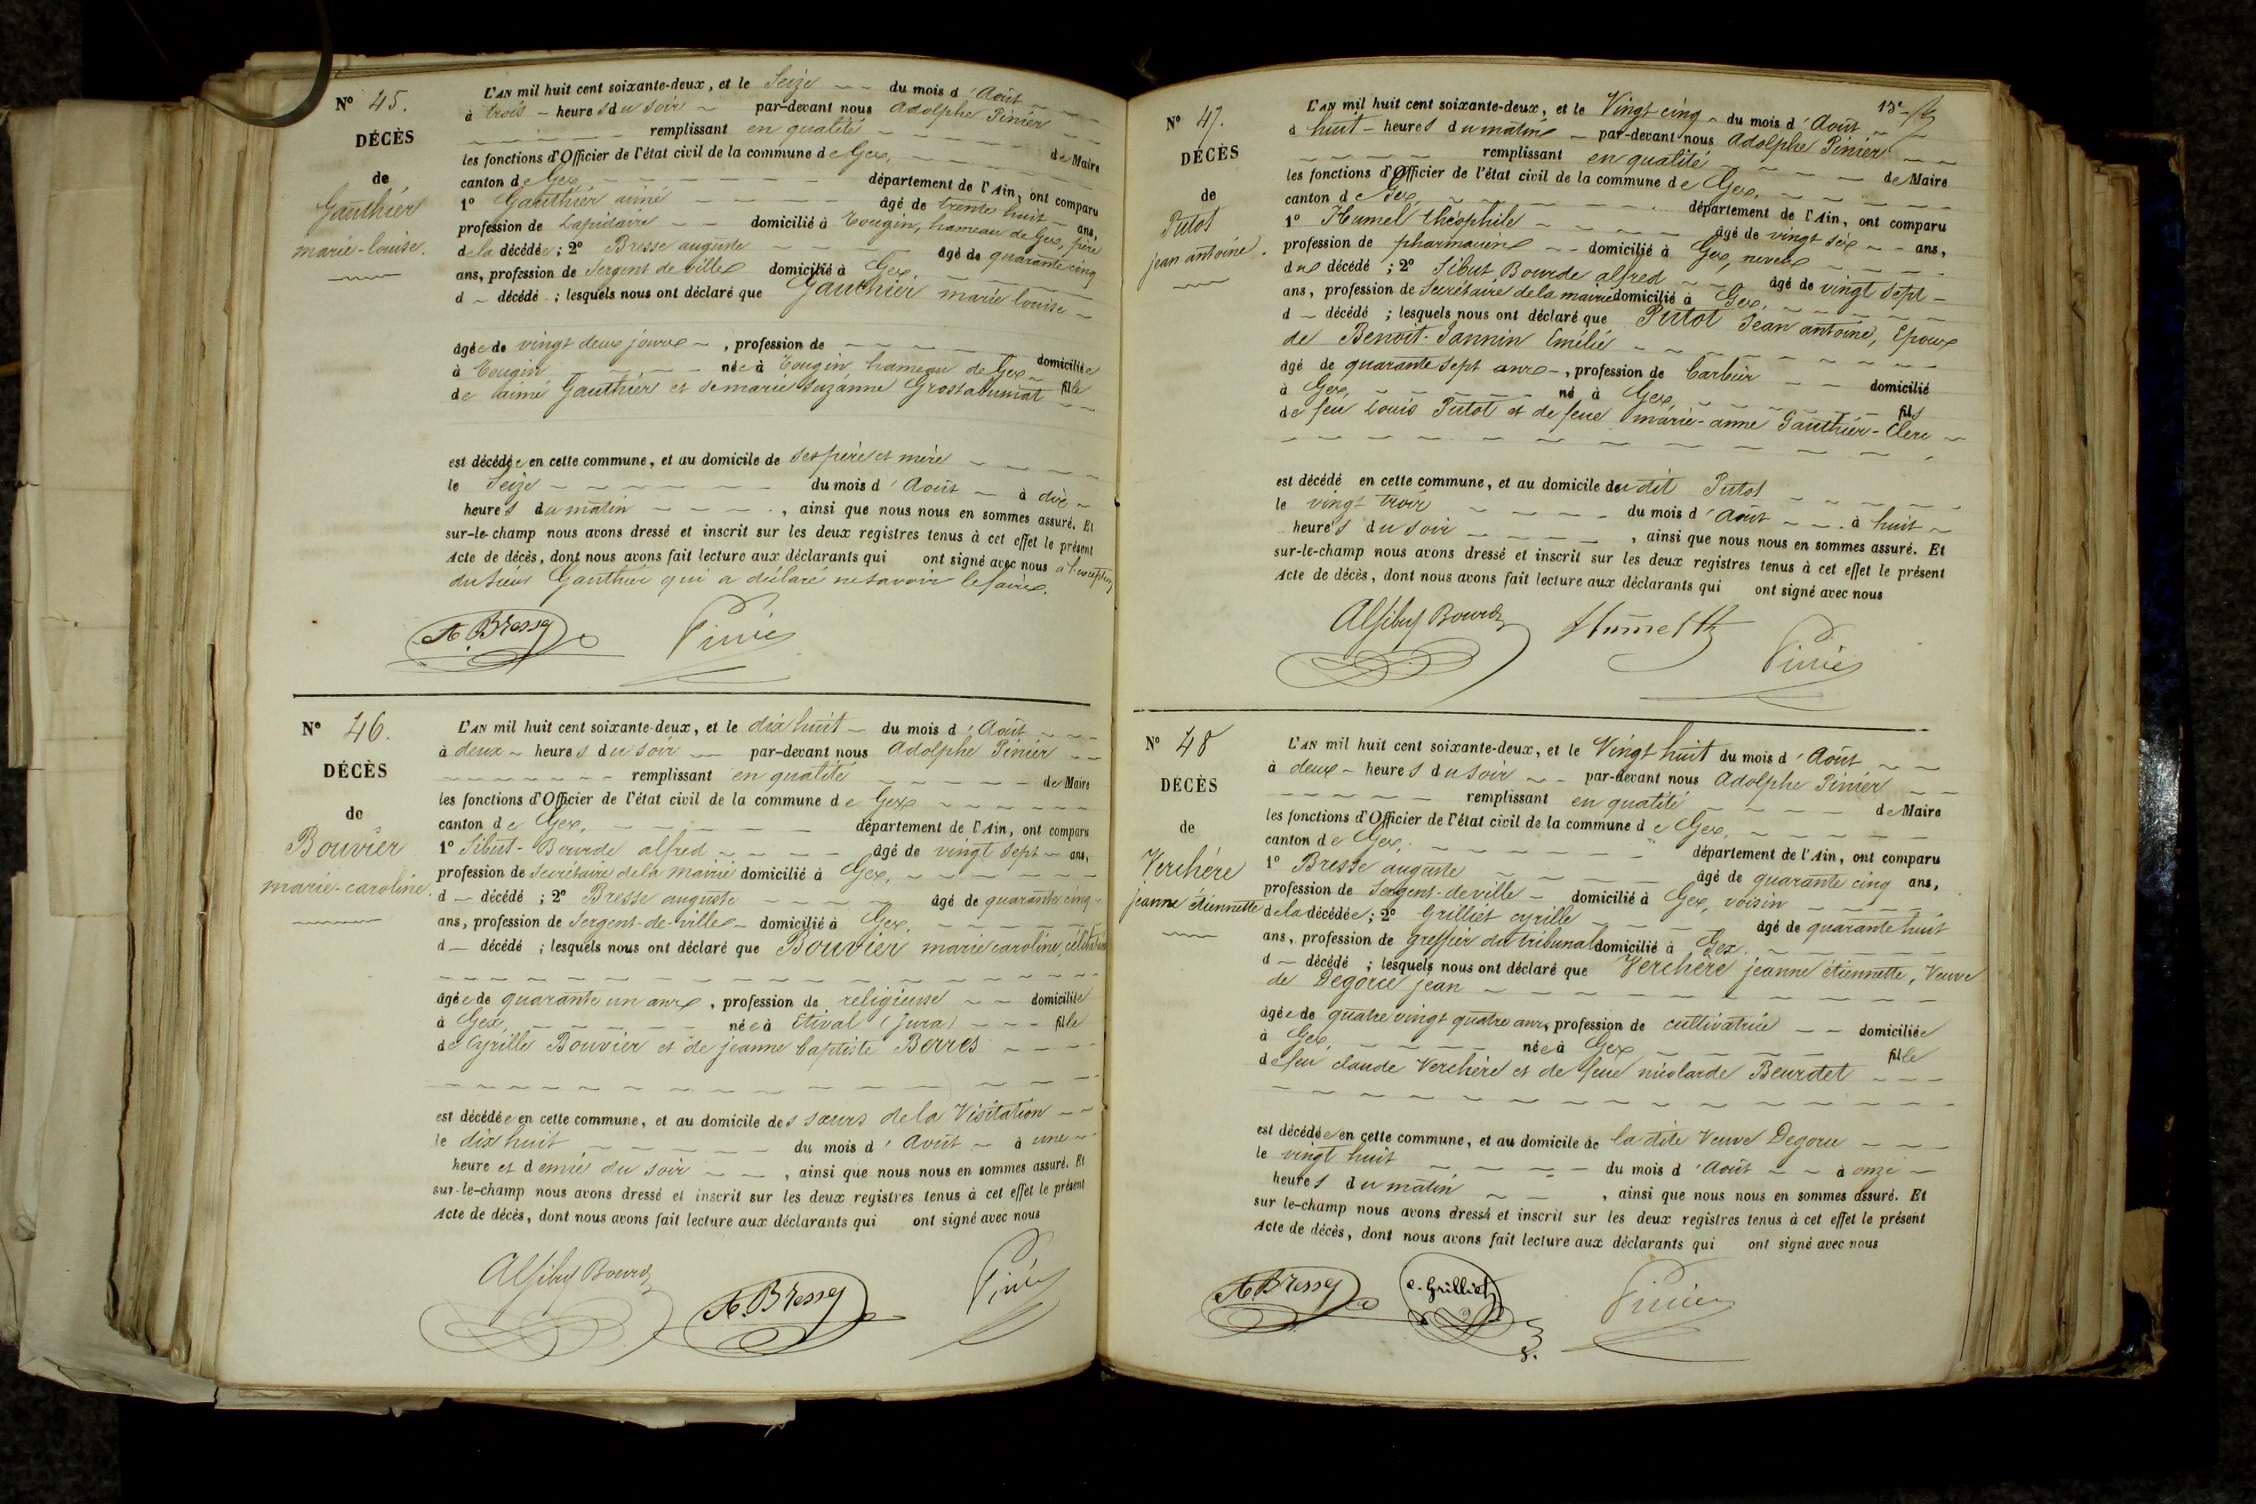 N° 45.
DÉCÈS
de
Gauthier
marie-louise.
L'AN mil huit cent soixante-deux, et le Seize du mois d'Août
à trois heures du soir par-devant nous Adolphe Pinier
remplissant en qualité de Maire
les fonctions d'Officier de l'état civil de la commune de Gex,
canton de Gex département de l'Ain, ont comparu
1° Gauthier aimé âgé de trente huit ans,
profession de Lapidaire domicilié à Tougin, hameau de Gex, père
de la décédée; 2° Bresse auguste âgé de quarante cinq
ans, profession de Sergent de ville domicilié à Gex,
d décédé ; lesquels nous ont déclaré que Gauthier marie louise
âgée de vingt deux jours , profession de domiciliée
à Tougin née à Tougin, hameau de Gex fille
de aimé Gauthier et de marie Suzanne
est décédée en cette commune, et au domicile de ses père et mère
le Seize du mois d'Août à dix
heures du matin , ainsi que nous nous en sommes assuré. Et
sur-le-champ nous avons dressé et inscrit sur les deux registres tenus à cet effet le présent
Acte de décès, dont nous avons fait lecture aux déclarants qui ont signé avec nous à l'exception
du sieur Gauthier qui a déclaré ne savoir le faire.
A. Bresse Pinier
N° 46.
DÉCÈS
de
Bouvier
marie-caroline.
L'AN mil huit cent soixante-deux, et le dix huit du mois d'Août
à deux heures du soir par-devant nous Adolphe Pinier
remplissant en qualité de Maire
les fonctions d'Officier de l'état civil de la commune de Gex
canton de Gex, département de l'Ain, ont comparu
1° Sibut-Bourde alfred âgé de vingt sept ans,
profession de Secrétaire de la Mairie domicilié à Gex,
d décédé ; 2° Bresse auguste âgé de quarante cinq
ans, profession de Sergent-de-ville domicilié à Gex,
d décédé ; lesquels nous ont déclaré que Bouvier marie caroline, célibataire
âgée de quarante un ans , profession de religieuse domiciliée
à Gex, née à Etival (Jura) fille
de Cyrille Bouvier et de jeanne baptiste Berres
est décédée en cette commune, et au domicile des sœurs de la Visitation
le dix huit du mois d'Août à une
heure et demie du soir , ainsi que nous nous en sommes assuré. Et
sur-le-champ nous avons dressé et inscrit sur les deux registres tenus à cet effet le présent
Acte de décès, dont nous avons fait lecture aux déclarants qui ont signé avec nous
A Sibut Bourde A. Bresse Pinier
13e
N° 47.
DÉCÈS
de
Putot
jean antoine.
L'AN mil huit cent soixante-deux, et le Vingt cinq du mois d'Août
à huit heures du matin par-devant nous Adolphe Pinier
remplissant en qualité de Maire
les fonctions d'Officier de l'état civil de la commune de Gex,
canton de Gex, département de l'Ain, ont comparu
1° Humel théophile âgé de vingt six ans,
profession de pharmacien domicilié à Gex, neveu
du décédé ; 2° Sibut Bourde alfred âgé de vingt sept
ans, profession de Secrétaire de la mairie domicilié à Gex,
d décédé ; lesquels nous ont déclaré que Putot Jean antoine, Epoux
de Benoit-Jannin Emélie
âgé de quarante sept ans , profession de barbier domicilié
à Gex, né à Gex, fils
de feu Louis Putot et de feue marie-anne Gauthier-Clerc
est décédé en cette commune, et au domicile du dit Putot
le vingt trois du mois d'Août à huit
heures du soir , ainsi que nous nous en sommes assuré. Et
sur-le-champ nous avons dressé et inscrit sur les deux registres tenus à cet effet le présent
Acte de décès, dont nous avons fait lecture aux déclarants qui ont signé avec nous
A Sibut Bourde Humel th Pinier
N° 48
DÉCÈS
de
Verchère
jeanne étiennette
L'AN mil huit cent soixante-deux, et le Vingt huit du mois d'Août
à deux heures du soir par-devant nous Adolphe Pinier
remplissant en qualité de Maire
les fonctions d'Officier de l'état civil de la commune de Gex,
canton de Gex, département de l'Ain, ont comparu
1° Bresse auguste âgé de quarante cinq ans,
profession de Sergent-de-ville domicilié à Gex, voisin
de la décédée; 2° Grilliet cyrille âgé de quarante huit
ans, profession de greffier du tribunal domicilié à Gex.
d décédé ; lesquels nous ont déclaré que Verchère jeanne étiennette, Veuve
de Degorce jean
âgée de quatre vingt quatre ans, profession de cultivatrice domiciliée
à Gex, née à Gex fille
de feu claude Verchère et de feue nicolarde Beurdet
est décédée en cette commune, et au domicile de la dite Veuve Degorce
le vingt huit du mois d'Août à onze
heures du matin , ainsi que nous nous en sommes assuré. Et
sur le-champ nous avons dressé et inscrit sur les deux registres tenus à cet effet le présent
Acte de décès, dont nous avons fait lecture aux déclarants qui ont signé avec nous
A. Bresse c. Grilliet Pinier